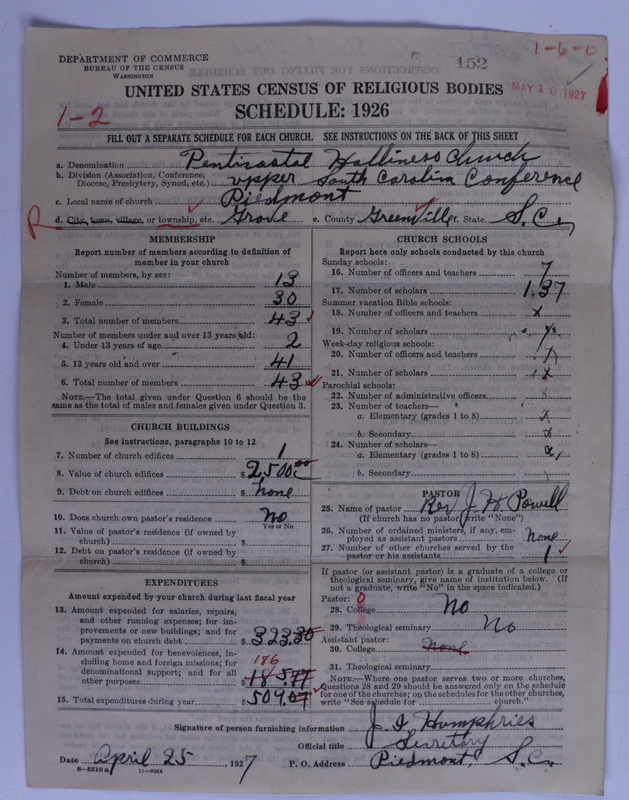 152
1-6-0
DEPARTMENT OF COMMERCE
BUREAU OF THE CENSUS
WASHINGTON
MAY 10 1927
UNITED STATES CENSUS OF RELIGIOUS BODIES
1-2
SCHEDULE: 1926
FILL OUT A SEPARATE SCHEDULE FOR EACH CHURCH. SEE INSTRUCTIONS ON THE BACK OF THIS SHEET
a. Denomination Penticostal Holliness Church
b. Division (Association, Conference, Diocese, Presbytery, Synod, etc.) upper South Carolina Conference
c. Local name of church Piedmont
R d. City, town, village, or township, etc. Grove e. County Greenville f. State S.C.
MEMBERSHIP
Report number of members according to definition of
member in your church
Number of members, by sex:
1. Male 13
2. Female 30
3. Total number of members 43
Number of members under and over 13 years old:
4. Under 13 years of age 2
5. 13 years old and over 41
6. Total number of members 43
NOTE.—The total given under Question 6 should be the
same as the total of males and females given under Question 3.
CHURCH BUILDINGS
See instructions, paragraphs 10 to 12
7. Number of church edifices 1
8. Value of church edifices $2,500.00
9. Debt on church edifices $ none
10. Does church own pastor's residence No
Yes or No
11. Value of pastor's residence (if owned by
church) $
12. Debt on pastor's residence (if owned by
church) $
EXPENDITURES
Amount expended by your church during last fiscal year
13. Amount expended for salaries, repairs,
and other running expenses; for im-
provements or new buildings; and for
payments on church debt $ 323.30
14. Amount expended for benevolences, in-
cluding home and foreign missions; for
denominational support; and for all
186
other purposes $185.77
15. Total expenditures during year $509.07
CHURCH SCHOOLS
Report here only schools conducted by this church
Sunday schools:
16. Number of officers and teachers 7
17. Number of scholars 137
Summer vacation Bible schools:
18. Number of officers and teachers x
19. Number of scholars x
Week-day religious schools:
20. Number of officers and teachers x
21. Number of scholars x
Parochial schools:
22. Number of administrative officers x
23. Number of teachers—
a. Elementary (grades 1 to 8) x
b. Secondary x
24. Number of scholars—
a. Elementary (grades 1 to 8) x
b. Secondary
PASTOR
25. Name of pastor Rev J. W Powell
(If church has no pastor, write "None")
26. Number of ordained ministers, if any, em-
ployed as assistant pastors none
27. Number of other churches served by the
pastor or his assistants 1
If pastor (or assistant pastor) is a graduate of a college or
theological seminary, give name of institution below. (If
not a graduate, write "No" in the space indicated.)
Pastor: 0
28. College No
29. Theological seminary No
Assistant pastor:
30. College None
31. Theological seminary
NOTE.—Where one pastor serves two or more churches,
Questions 28 and 29 should be answered only on the schedule
for one of the churches; on the schedules for the other churches,
write "See schedule for church."
Signature of person furnishing information J. I Humphries
Official title Secretary
Date April 25, 1927 P. O. Address Piedmont, S.C.
8-5518a 11-9684